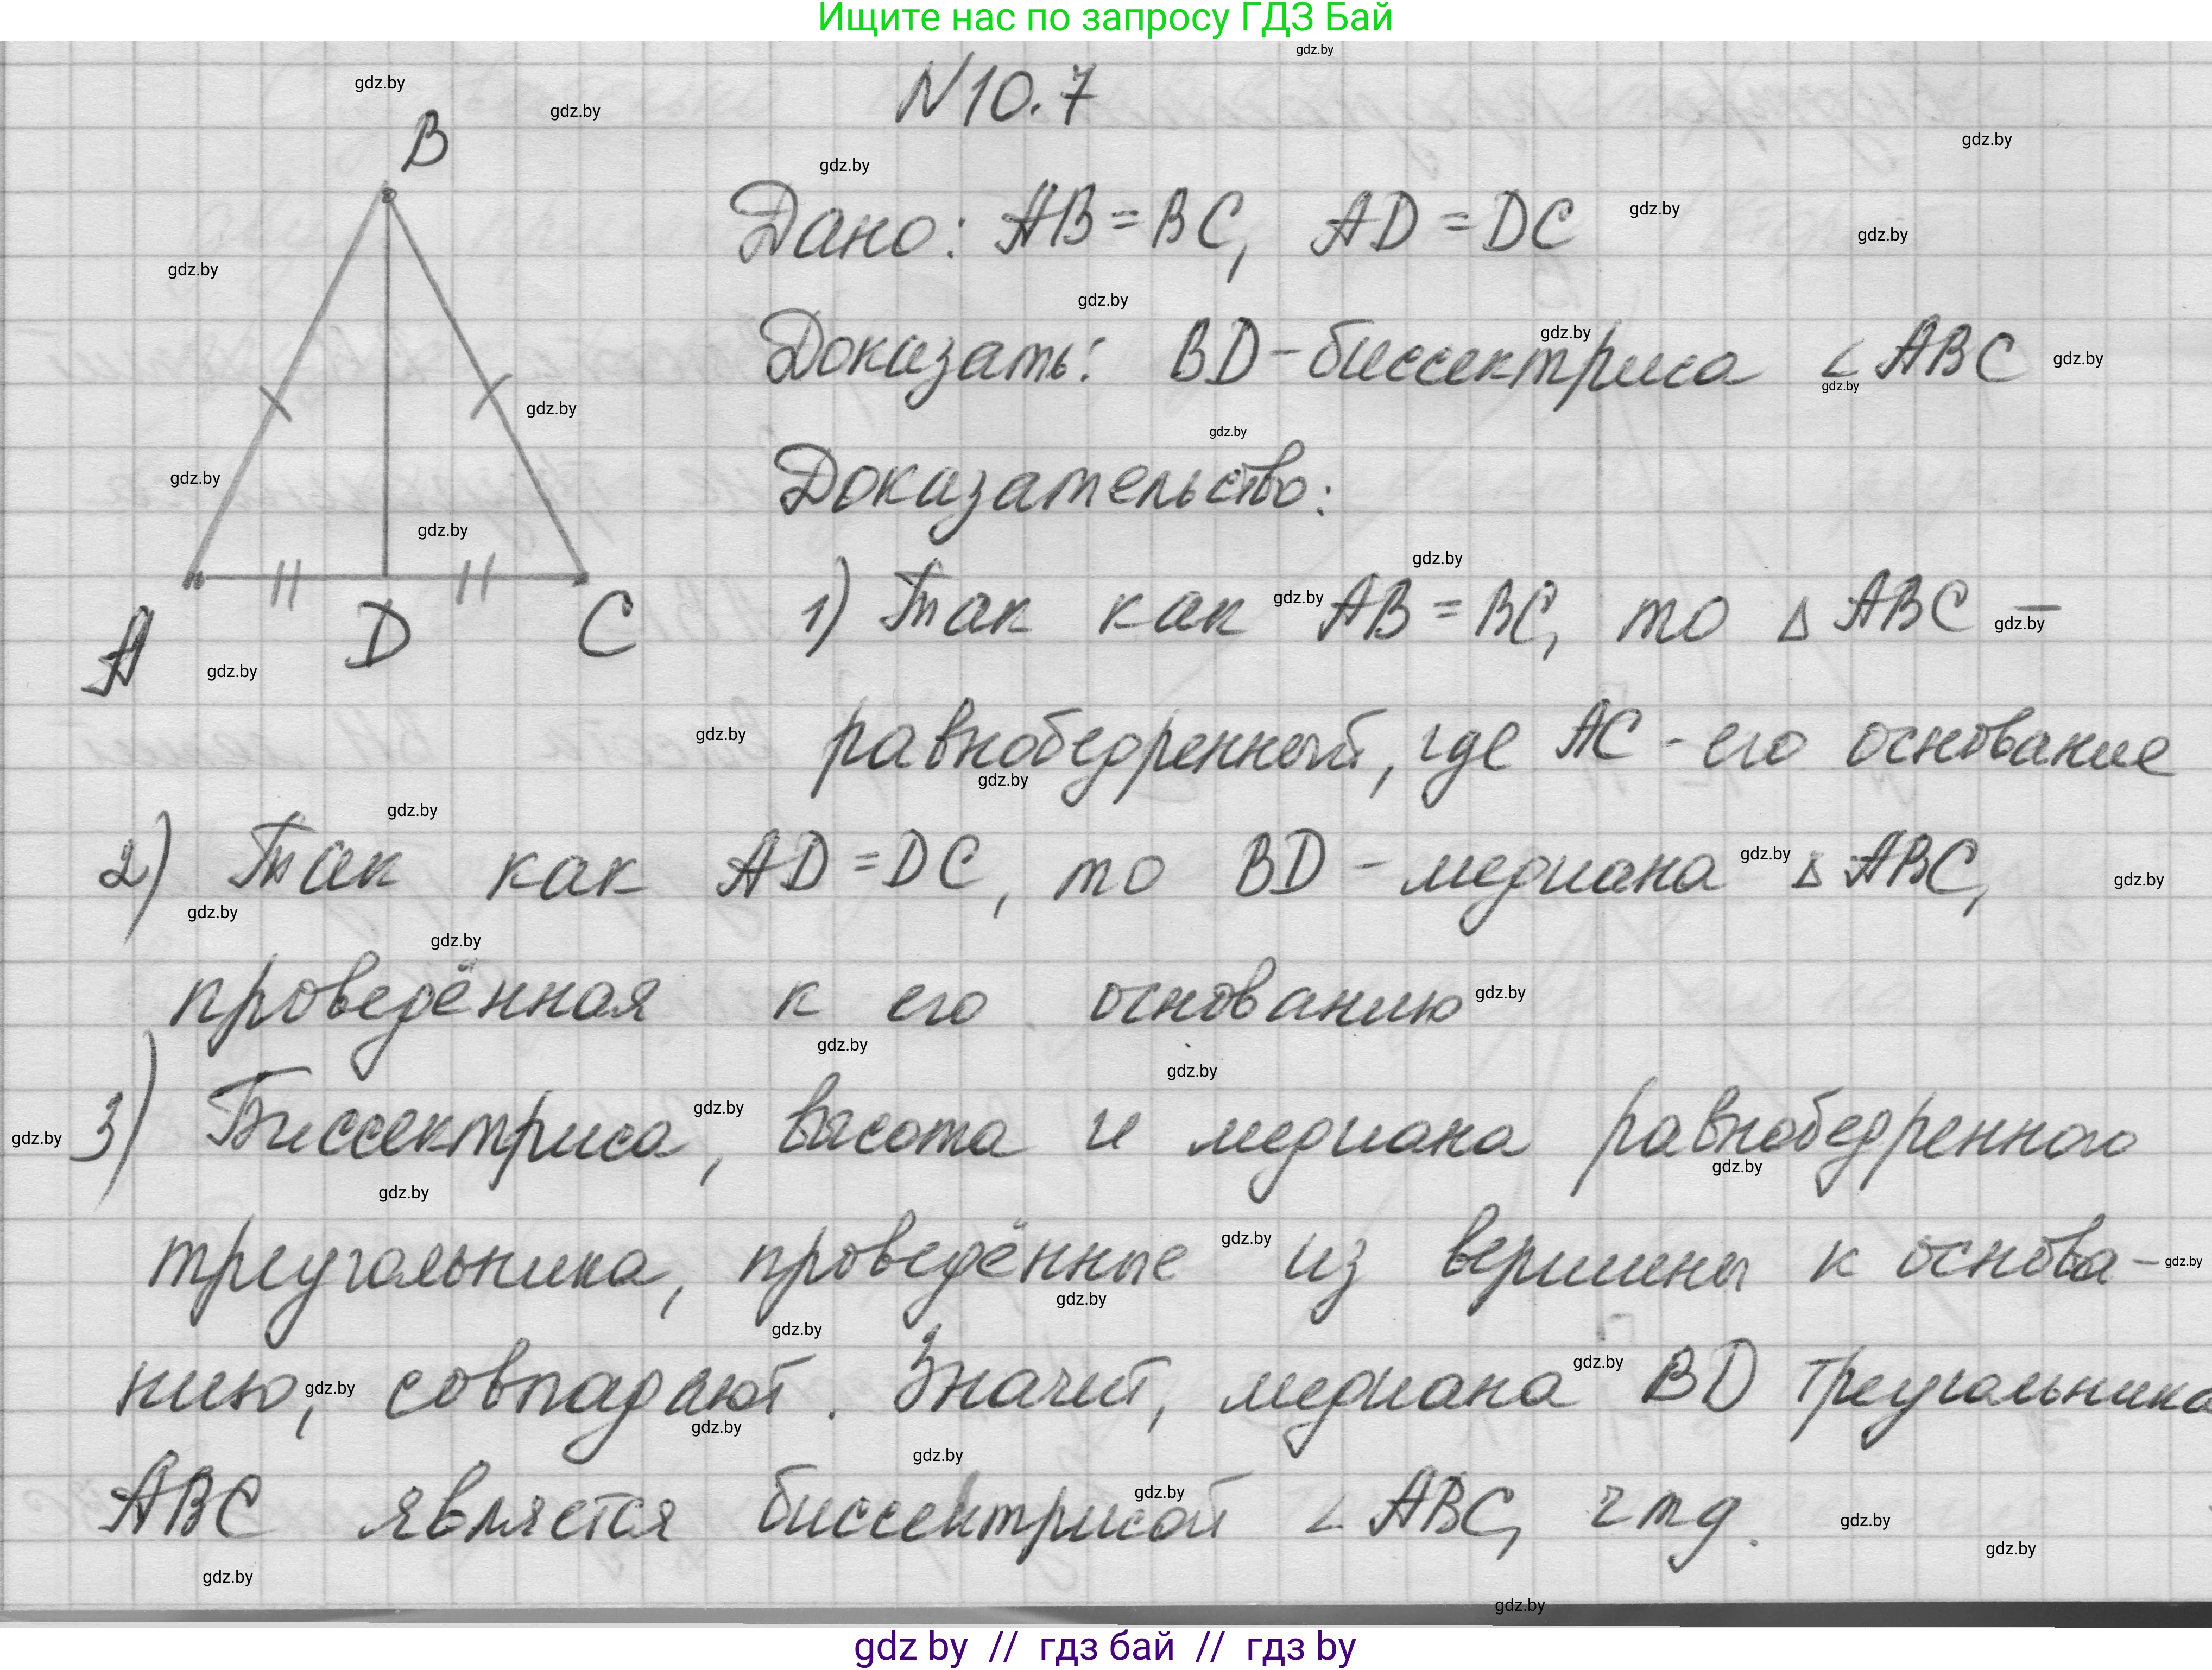 Ищите нас по запросу ГДЗ Бай
N10.7
B
A
D
C
Дано: AB = BC, AD = DC
Доказать: BD - биссектриса ∠ABC
Доказательство:
1) Так как AB = BC, то △ABC -
равнобедренный, где AC - его основание
2) Так как AD = DC, то BD - медиана △ABC,
проведённая к его основанию
3) Биссектриса, высота и медиана равнобедренного
треугольника, проведённые из вершины к основа-
нию, совпадают. Значит, медиана BD треугольника
ABC является биссектрисой ∠ABC, чтд.
gdz.by
gdz by // гдз бай // гдз by